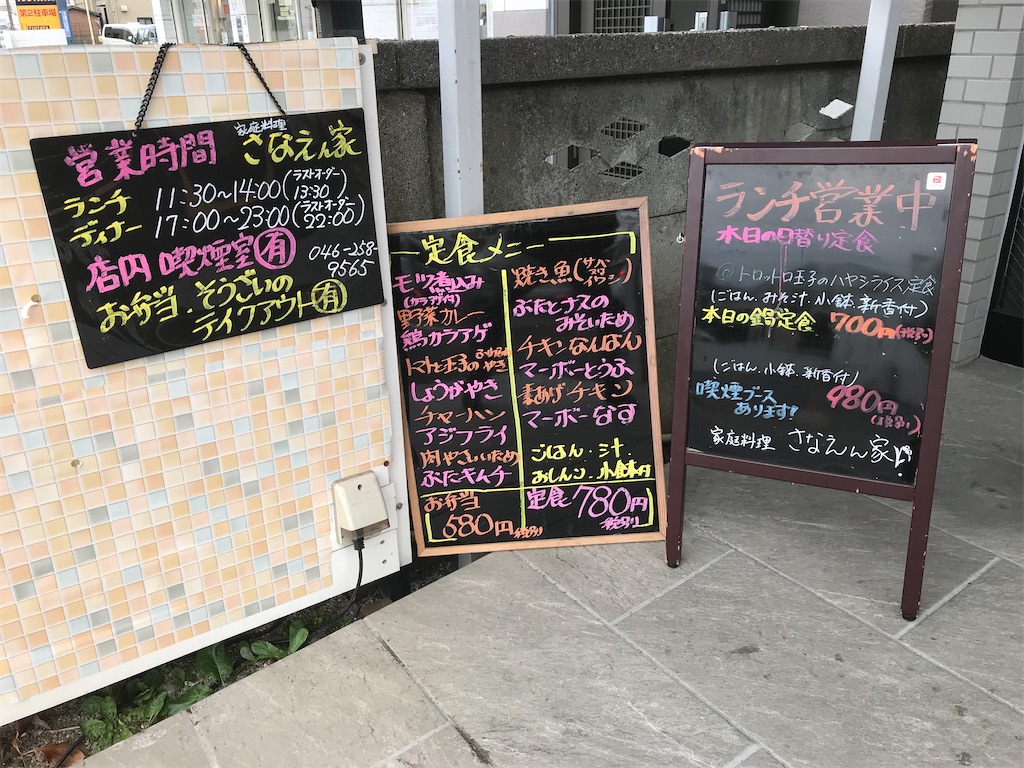 第2駐車場
家庭料理
営業時間 さなえん家
ランチ 11:30~14:00(ラストオーダー 13:30)
ディナー 17:00~23:00(ラストオーダー 22:00)
店内 喫煙室有
046-258-9565
お弁当、そうざいの
テイクアウト有
定食メニュー
モツ煮込み
(カラアゲ付)
野菜カレー
鶏カラアゲ
トマト王子のやき
しょうがやき
チャーハン
アジフライ
肉やさいいため
ぶたキムチ
お弁当
680円税別
焼き魚(サバ
イワシ)
ぶたとナスの
みそいため
チキンなんばん
マーボーとうふ
素あげチキン
マーボーなす
ごはん・汁
おしんこ・小鉢付
定食780円
税別
ランチ営業中
本日の日替り定食
@トロットロ玉子のハヤシライス定食
(ごはん、みそ汁、小鉢、新香付)
本日の鍋定食 700円(税別)
(ごはん、小鉢、新香付)
喫煙ブース 980円
あります! (税別)
家庭料理 さなえん家